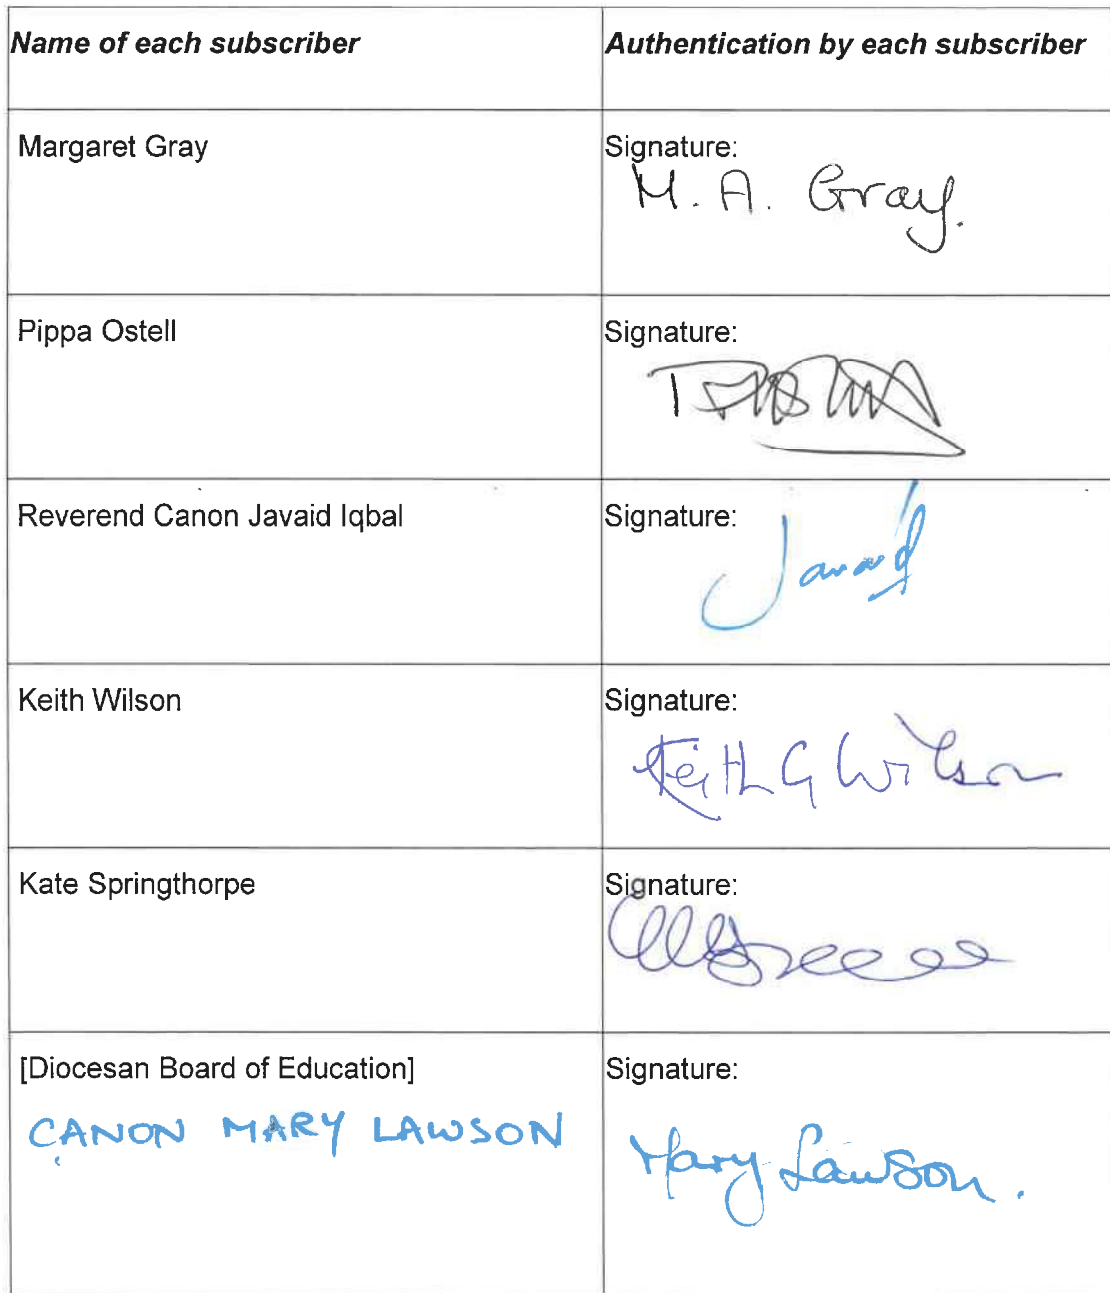 Name of each subscriber
Authentication by each subscriber
Margaret Gray
Signature:
M. A. Gray.
Pippa Ostell
Signature:
Reverend Canon Javaid Iqbal
Signature:
Javaid
Keith Wilson
Signature:
Keith G Wilson
Kate Springthorpe
Signature:
[Diocesan Board of Education]
CANON MARY LAWSON
Signature:
Mary Lawson.